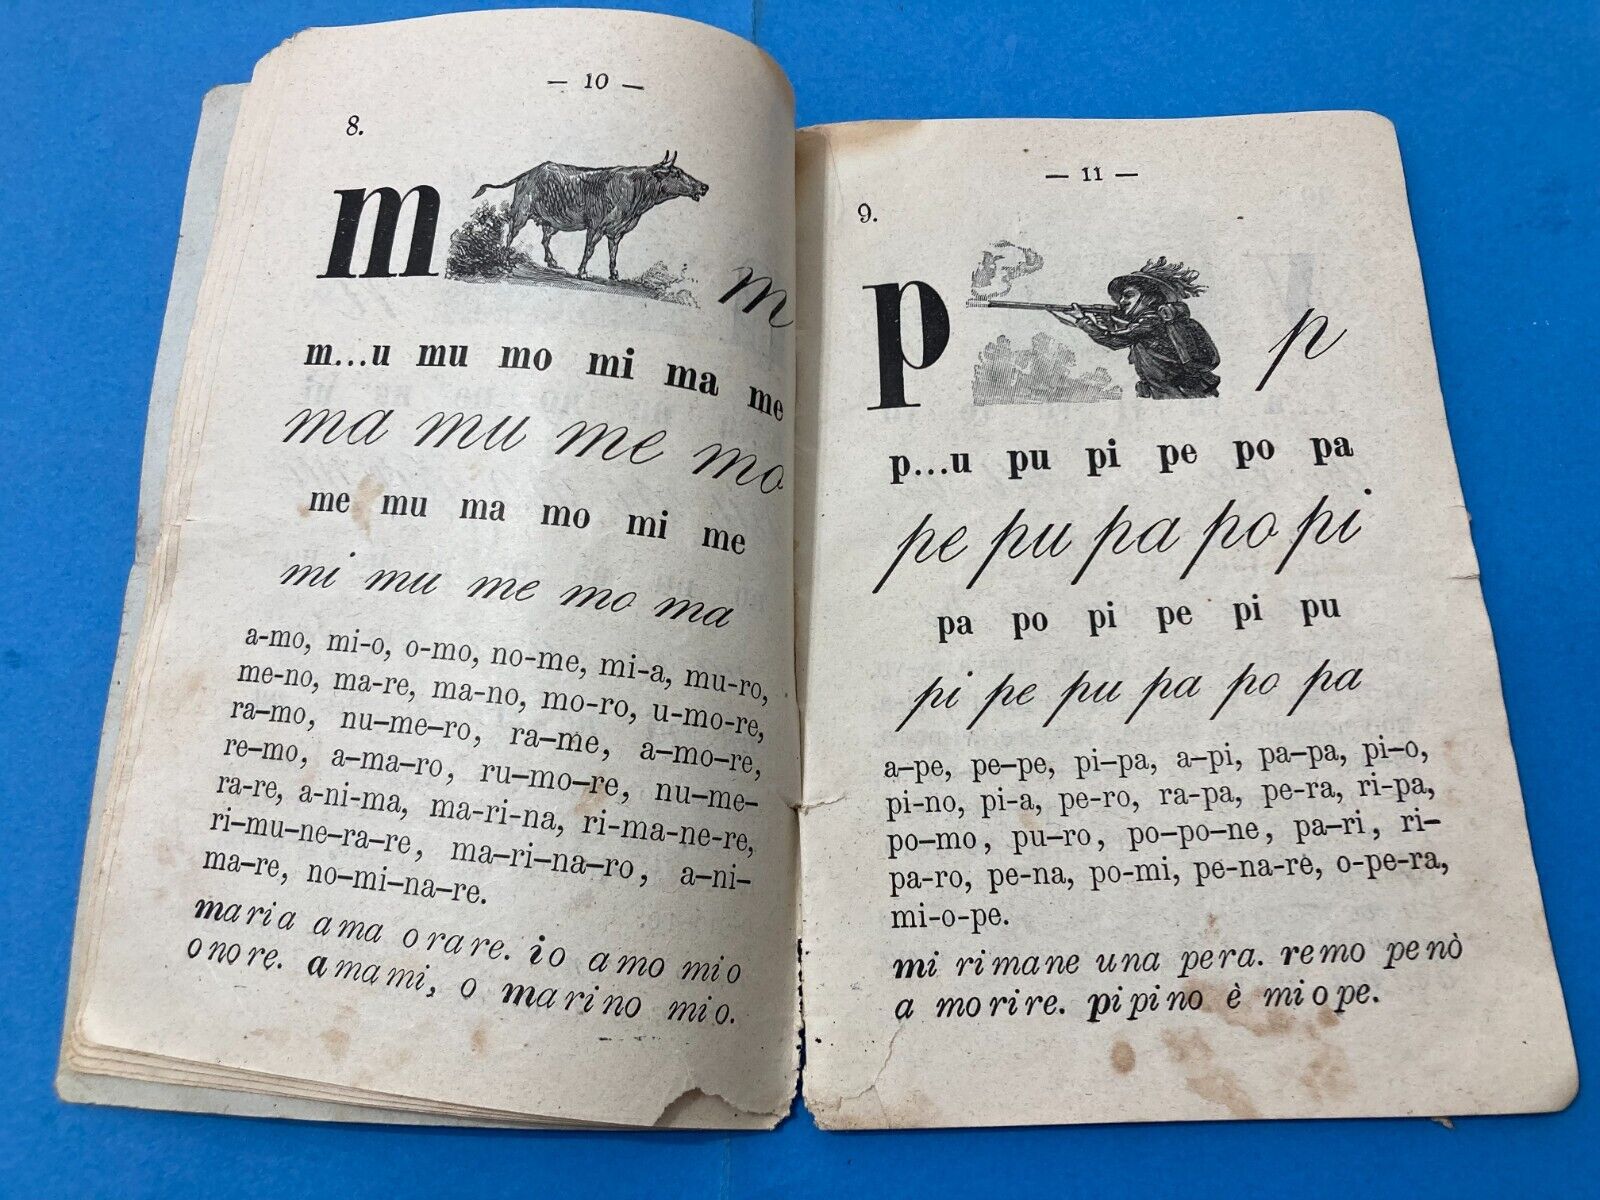 — 10 —
8.
m m
m...u mu mo mi ma me
ma mu me mo
me mu ma mo mi me
mi mu me mo ma
a-mo, mi-o, o-mo, no-me, mi-a, mu-ro,
me-no, ma-re, ma-no, mo-ro, u-mo-re,
ra-mo, nu-me-ro, ra-me, a-mo-re,
re-mo, a-ma-ro, ru-mo-re, nu-me-
ra-re, a-ni-ma, ma-ri-na, ri-ma-ne-re,
ri-mu-ne-ra-re, ma-ri-na-ro, a-ni-
ma-re, no-mi-na-re.
maria ama orare. io amo mio
onore. amami, o marino mio.
— 11 —
9.
p p
p...u pu pi pe po pa
pe pu pa po pi
pa po pi pe pi pu
pi pe pu pa po pa
a-pe, pe-pe, pi-pa, a-pi, pa-pa, pi-o,
pi-no, pi-a, pe-ro, ra-pa, pe-ra, ri-pa,
po-mo, pu-ro, po-po-ne, pa-ri, ri-
pa-ro, pe-na, po-mi, pe-na-re, o-pe-ra,
mi-o-pe.
mi rimane una pera. remo penò
a morire. pipino è miope.